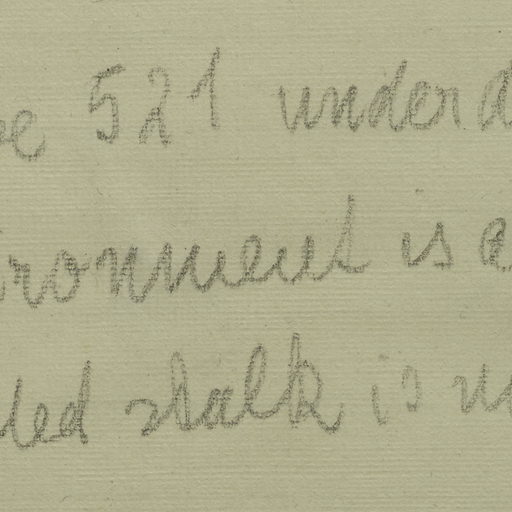 521 under
ironment is a
led stalk is